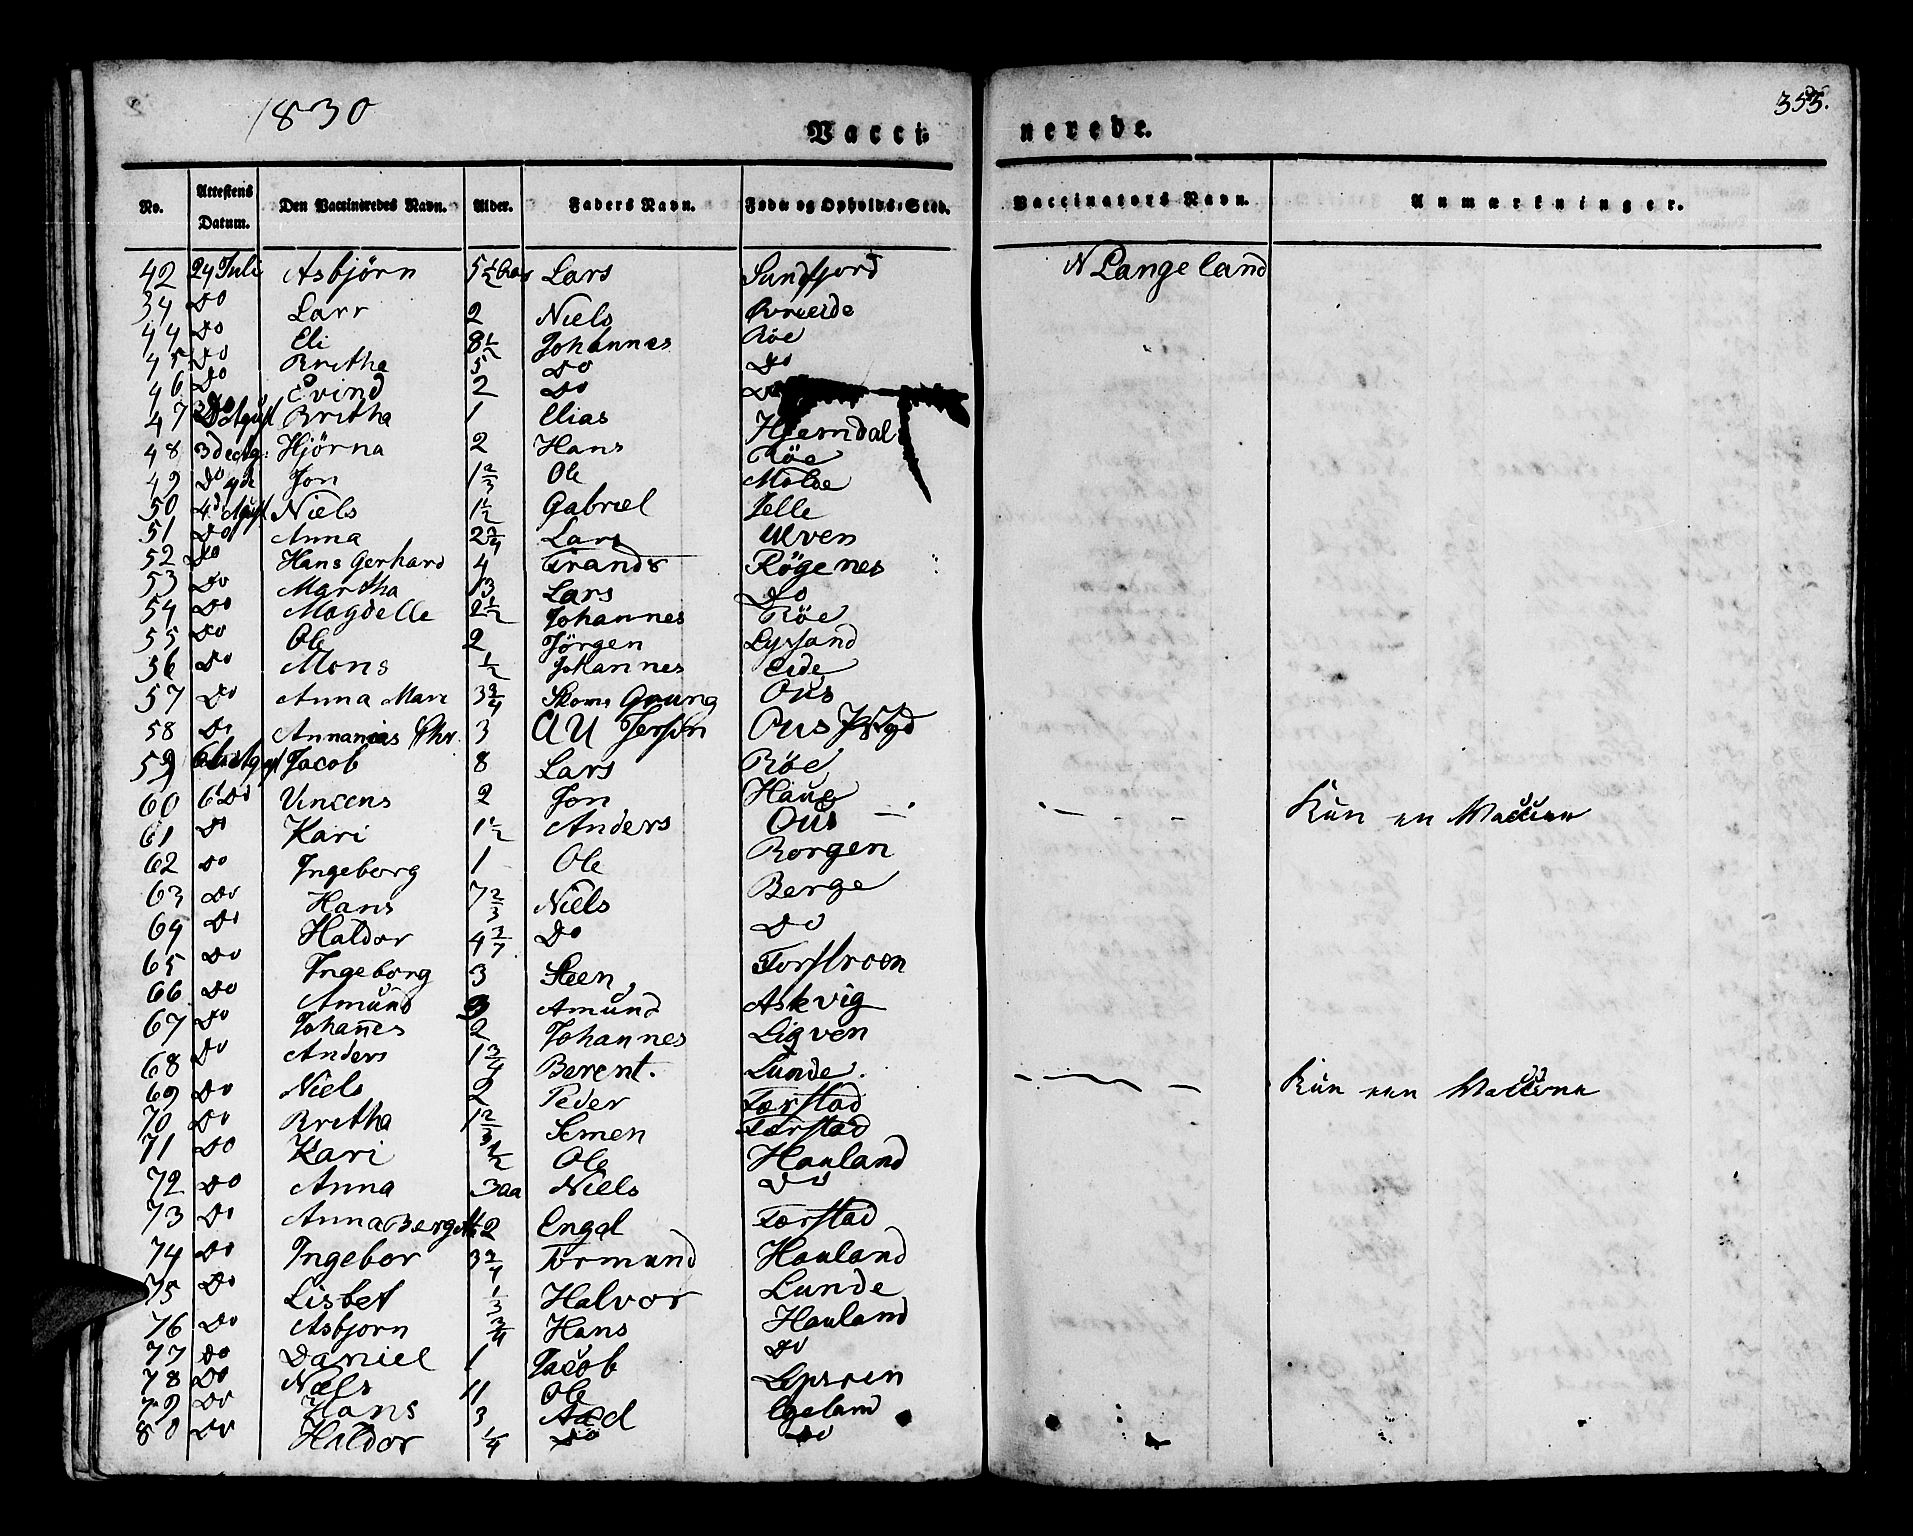 1830
353.
Vacci nerede.
No. Attestens Datum. Den Vaccineredes Navn. Alder. Faders Navn. Føde og Opholds-Sted. Vaccinators Navn. Anmærkninger.
42 24 Juli Asbjörn 5 1/2 Lars Sundfjord N Langeland
34 Do Larr 2 Niels
44 Do Eli 8 1/2 Johannes Röe
45 Do Britha 5 Do Do
46 Do Evind 2 Do Do
47 Britha 1 Elias Hjemdal
48 3de Ag: Hjörna 2 Hans Röe
49 Do Jon 1 2/3 Ole Molde
50 4d Niels 1 1/2 Gabriel Jelle
51 Do Anna 2 3/4 Lars Ulven
52 Do Hans Gerhard 4 Trands Rögenes
53 Do Martha 13 Lars Do
54 Do Magdelle 2 1/2 Johannes Röe
55 Do Ole 2 Jörgen Lyssand
56 Do Mons 1/2 Johannes Eide
57 Do Anna Mari 3 3/4 Grung Ous
58 Do Annanias Chr. 3 Ous
59 Jacob 8 Lars Röe
60 6 Do Vincens 2 Jon Haug
61 Do Kari 1 1/2 Anders Ous — . . — - - Kun en Vaccine
62 Do Ingeborg 1 Ole Borgen
63 Do Hans 7 2/3 Niels Berge
64 Do Haldor 4 Do Do
65 Do Ingeborg 3 Steen Torstroen
66 Do Amund 3 Amund Askvig
67 Do Johannes 2 Johannes Ligven
68 Do Anders 1 3/4 Berent. Lunde.
69 Do Niels 2 Peder Tærstad Kun een Vaccine
70 Do Britha 1 2/3 Semen Tærstad
71 Do Kari Ole Hauland
72 Do Anna 3 aa Niels Do
73 Do Anna 2 Engel Tærstad
74 Do Ingebor 3 3/4 Tormund Hauland
75 Do Lisbet 1/3 Halvor Lunde
76 Do Asbjorn 3/4 Hans Hauland
77 Do Daniel 1 Jacob Do
78 Do Niels 11 Ole
79 Do Hans 3 Egeland
80 Do Haldor 1/4 Do Do